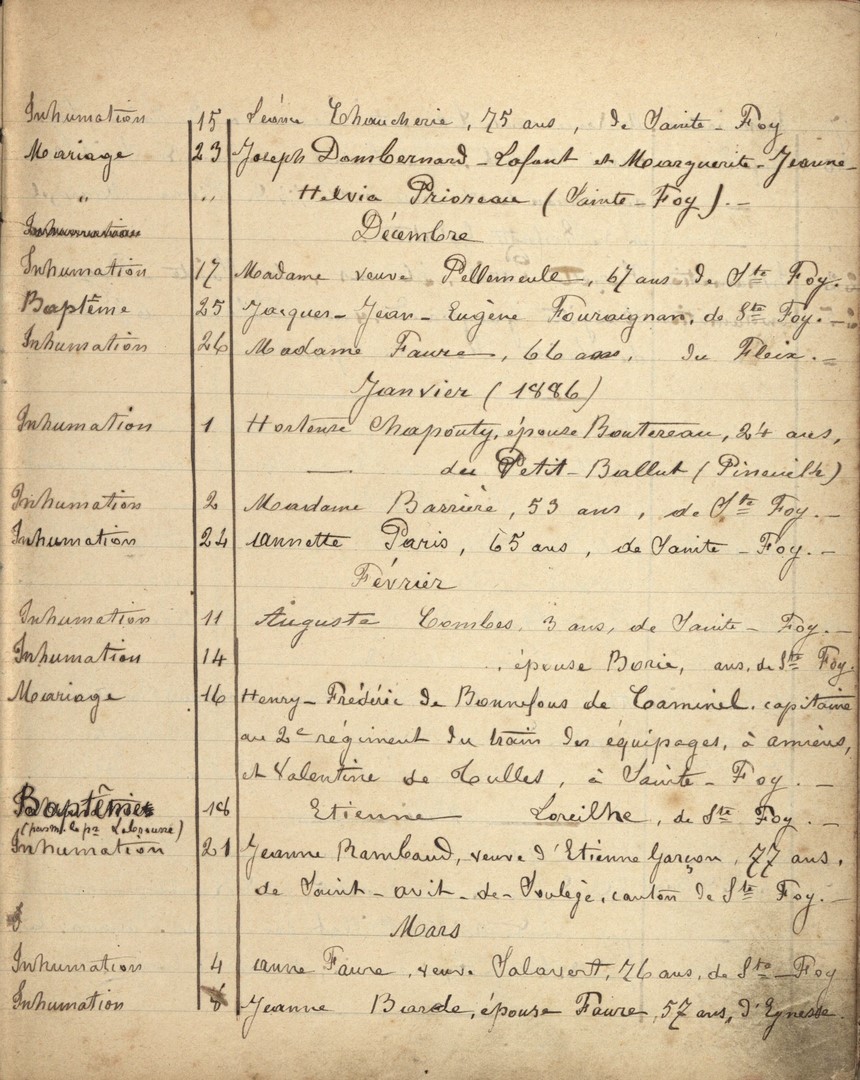 Inhumation 15 Léonie Chaucherie, 75 ans, de Sainte-Foy
Mariage 23 Joseph Dombernard-Lafont et Marguerite-Jeanne-
" " Helvia Prioreau (Sainte-Foy).-
Inhumation Décembre
Inhumation 17 Madame veuve Pellemeule, 67 ans de Ste Foy.-
Baptême 25 Jacques-Jean-Eugène Fouraignan, de Ste Foy.-
Inhumation 26 Madame Faure, 66 ans, du Fleix.-
Janvier (1886)
Inhumation 1 Hortense Chapouty, épouse Boutereau, 24 ans,
du Petit-Ballut (Pineuilh)
Inhumation 2 Madame Barrière, 53 ans, de Ste Foy.-
Inhumation 24 annette Paris, 65 ans, de Sainte-Foy.-
Février
Inhumation 11 Auguste Combes, 3 ans, de Sainte-Foy.-
Inhumation 14 , épouse Borie, ans, de Ste Foy.
Mariage 16 Henry-Frédéric de Bonnefous de Caminel, capitaine
au 2e régiment du train des équipages, à amiens,
et Valentine de Tulles, à Sainte-Foy.-
Baptême 18 Etienne Loreilhe, de Ste Foy.-
(par m. le pr )
Inhumation 21 Jeanne Rambaud, veuve d'Etienne Garçon, 77 ans,
de Saint-avit-de-Soulège, canton de Ste Foy.-
Mars
Inhumation 4 anne Faure, veuve Salavert, 76 ans, de Ste-Foy
Inhumation 8 Jeanne Barde, épouse Faure, 57 ans, d'Eynesse.